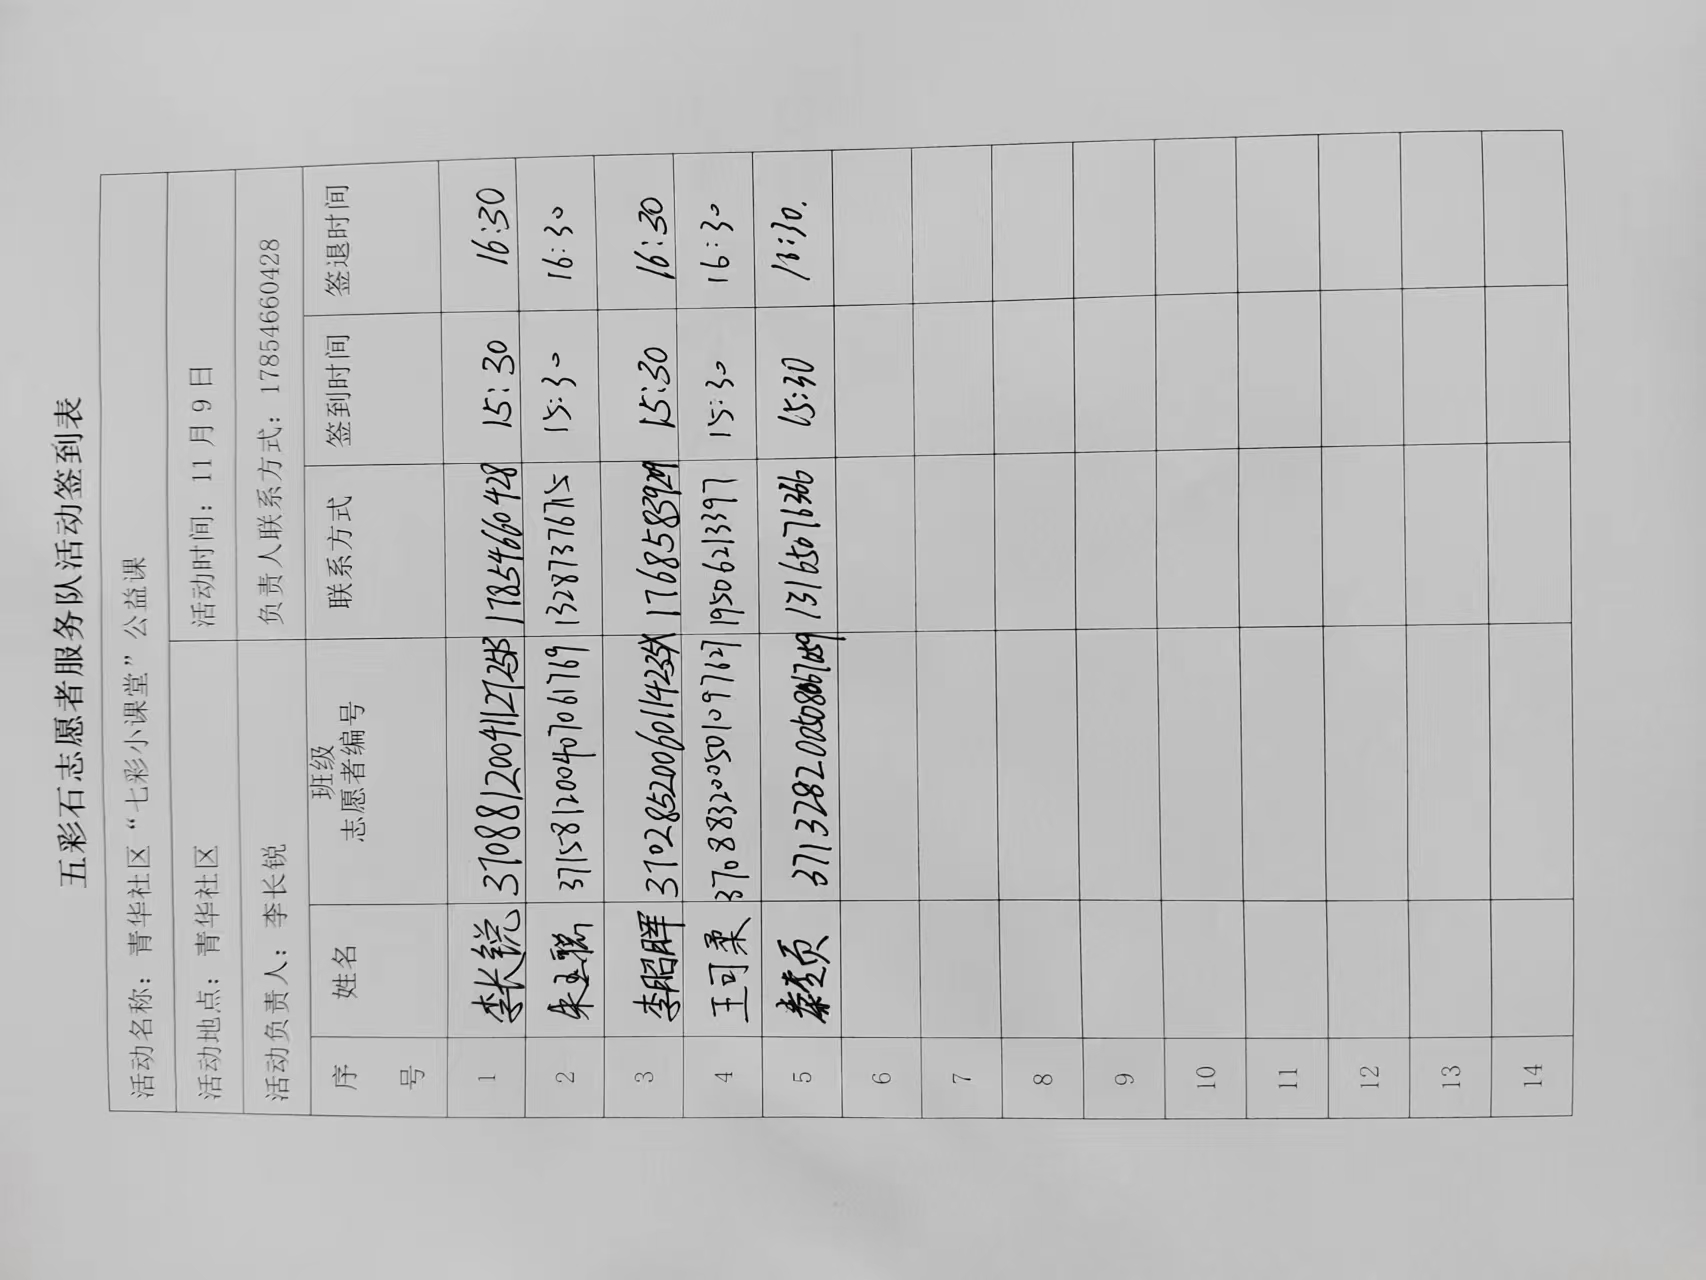 五彩石志愿者服务队活动签到表
活动名称：青华社区“七彩小课堂”公益课
活动地点：青华社区 活动时间：11月9日
活动负责人：李长锐 负责人联系方式：17854660428
序号 姓名 班级 志愿者编号 联系方式 签到时间 签退时间
1 李长锐 17854660428 15:30 16:30
2 371581200407061769 13287376715 15:30 16:30
3 李昭晖 37028520060114235X 15:30 16:30
4 王可柔 370883200501097627 19506213397 15:30 16:30
5 13165076366 15:30
6
7
8
9
10
11
12
13
14